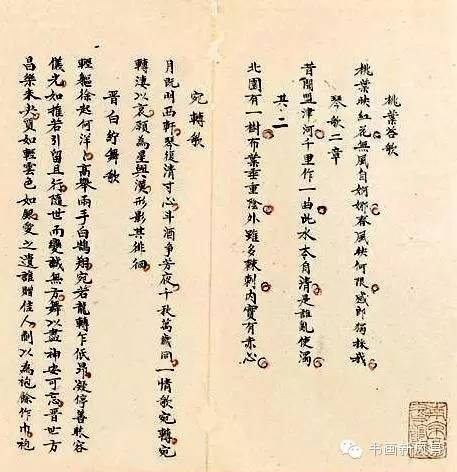 桃葉答歌
桃葉映紅花無風自婀娜春風映何限感郎獨採我
琴歌二章
昔聞盟津河千里作一曲此水本自清是誰亂使濁
其二
北園有一樹布葉垂重陰外雖多棘刺內實有赤心
宛轉歌
月既明西軒琴復清寸心斗酒爭芳夜千秋萬歲同一情歌宛轉宛
轉淒以哀願為星與漢形影共徘徊
晉白紵舞歌
輕軀徐起何洋〻高舉兩手白鵠翔宛若龍轉乍低昂凝停善睞容
儀光如推若引留且行隨世而變誠無方舞以盡神安可忘晉世方
昌樂未央質如輕雲色如銀愛之遺誰贈佳人制以為袍餘作巾袍
书画新风景